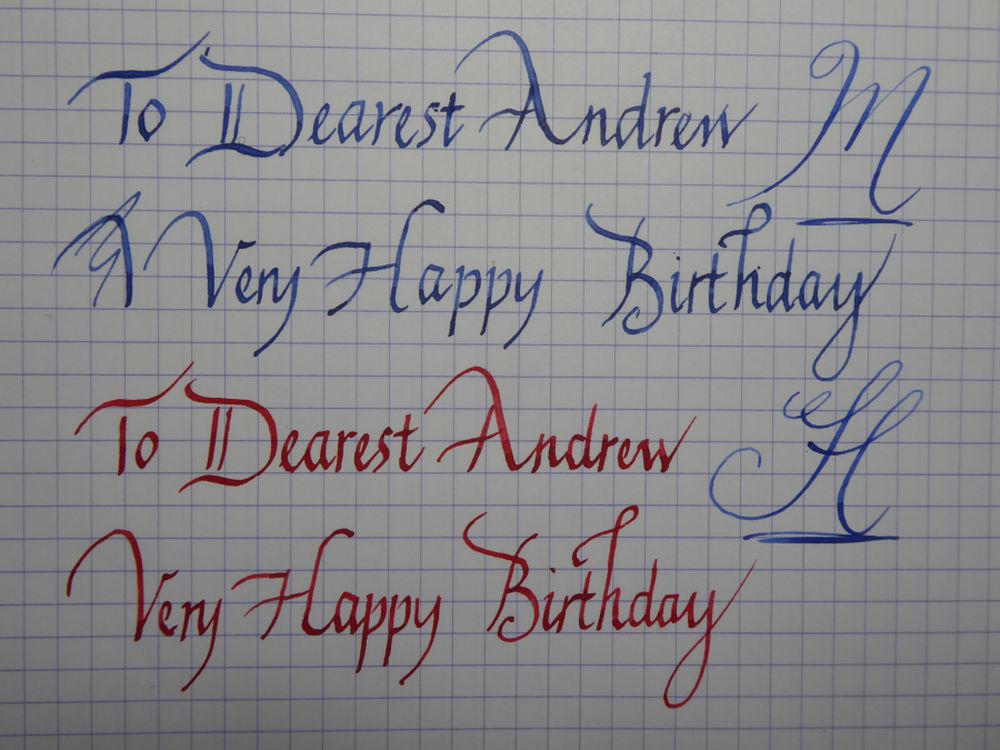 To Dearest Andrew M
A Very Happy Birthday
To Dearest Andrew H
Very Happy Birthday